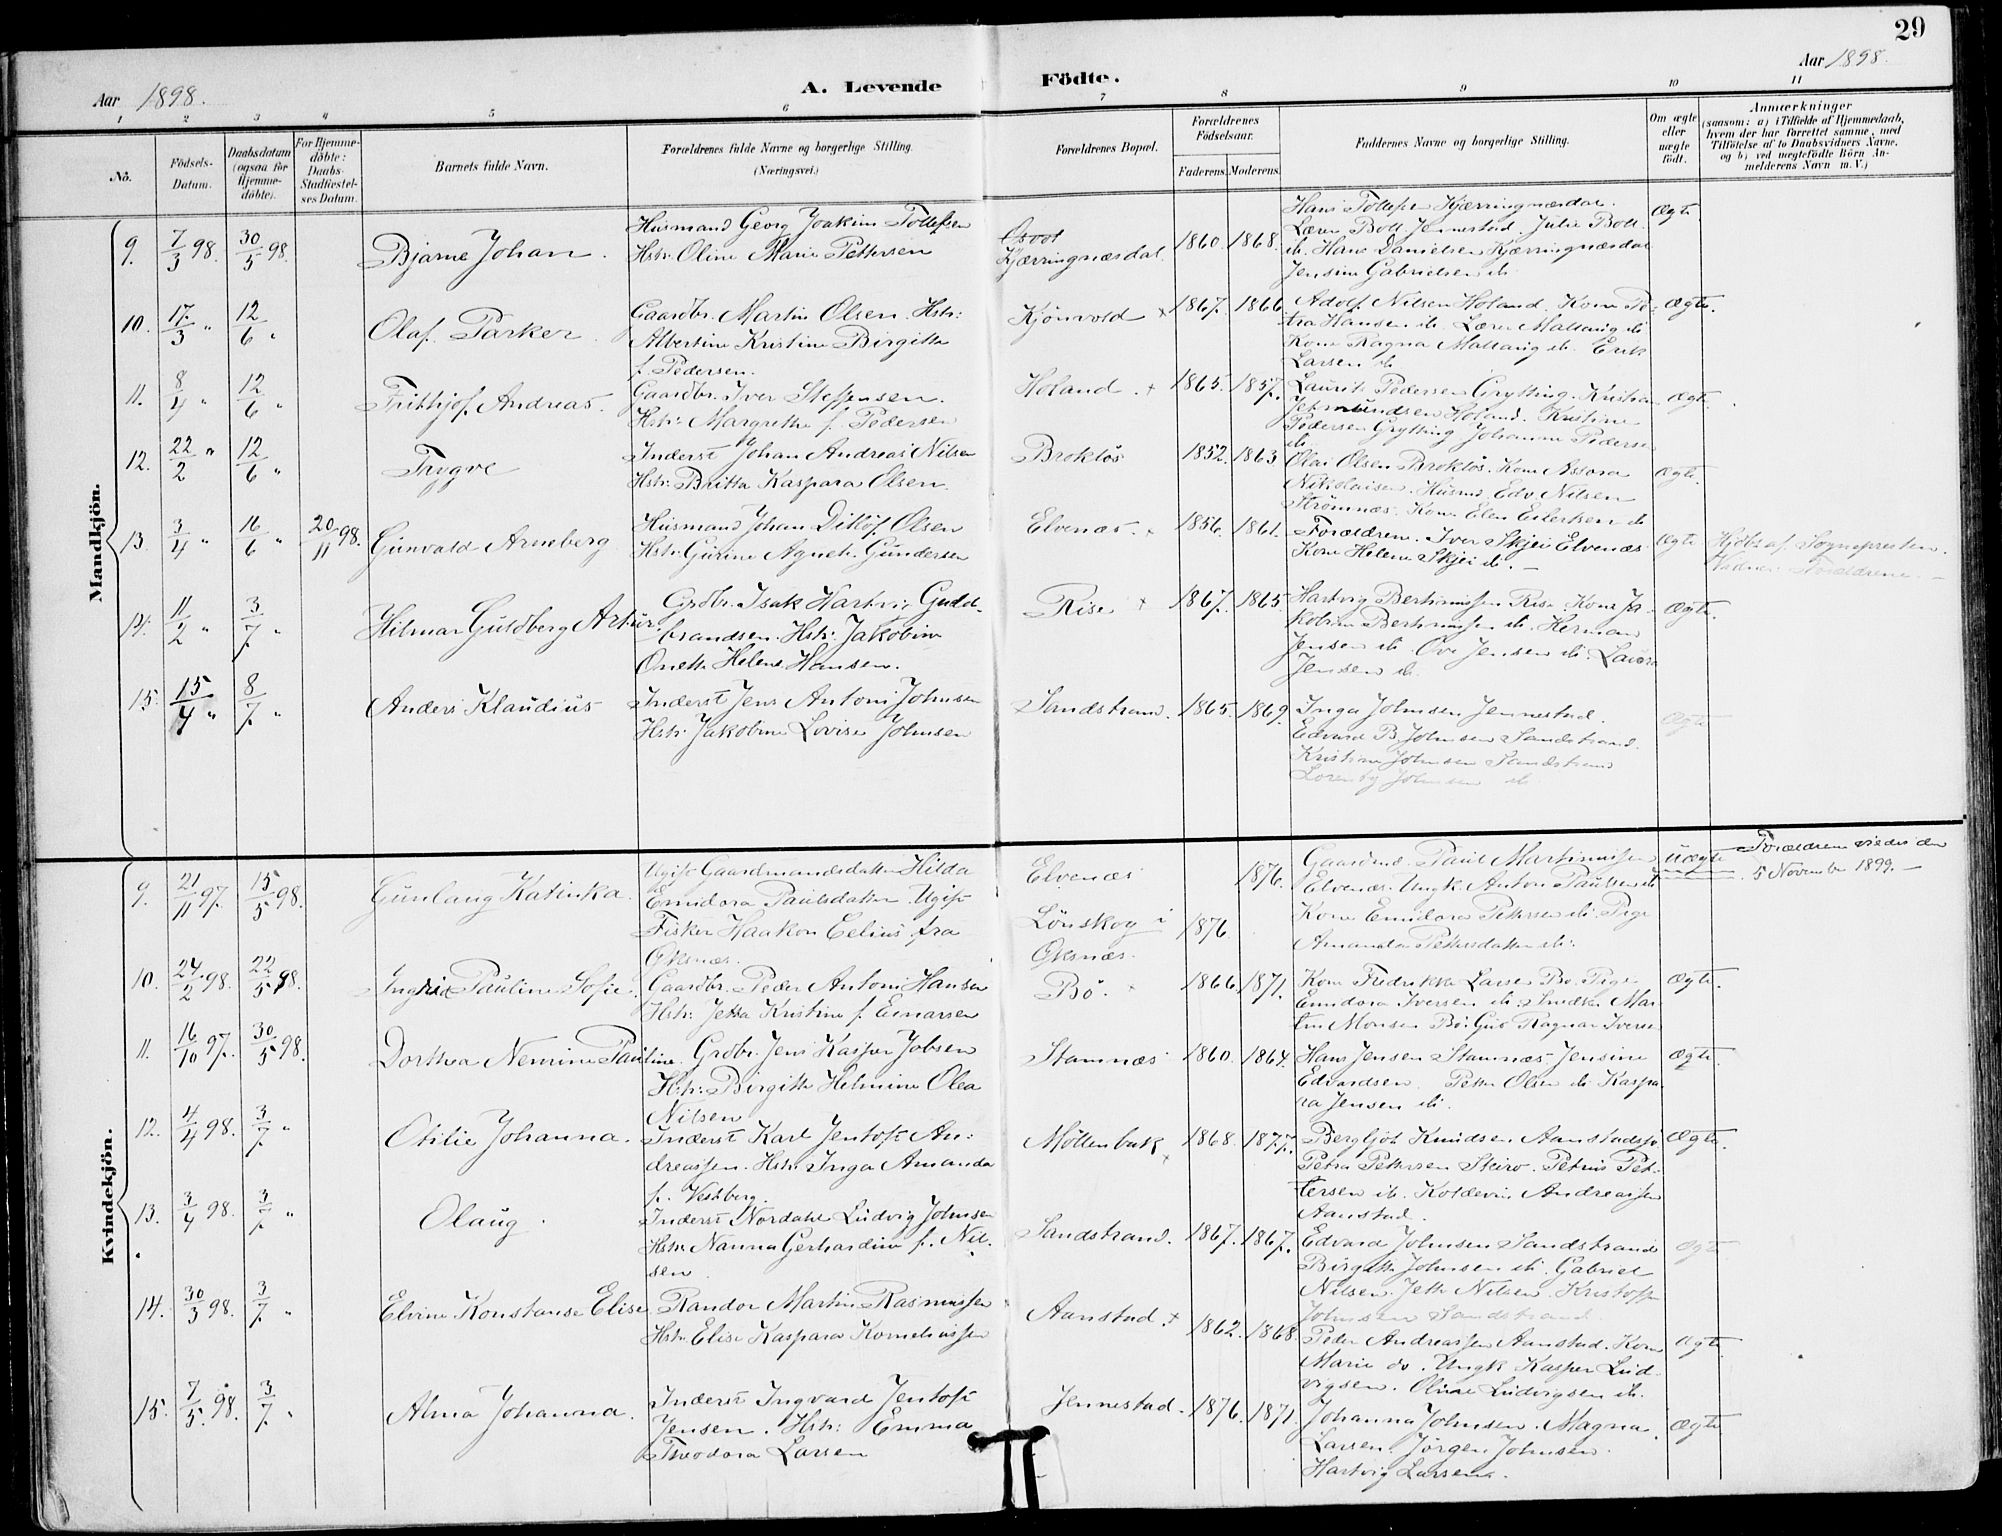 29
Aar 1898.
A. Levende Födte.
Aar 1898.
1 2 3 4 5 6 7 8 9 10 11
Nô.
Födsels-Datum.
Daabsdatum (ogsaa for Hjemme-döbte).
For Hjemme-döbte: Daabs-Stadfæstel-ses Datum.
Barnets fulde Navn.
Forældrenes fulde Navne og borgerlige Stilling.
(Næringsvei.)
Forældrenes Bopæl.
Forældrenes Födselsaar.
Faderens. Moderens.
Faddernes Navne og borgerlige Stilling.
Om ægte eller uægte födt.
Anmærkninger
(saasom: a) i Tilfælde af Hjemmedaab, hvem der har forrettet samme, med Tilföielse af to Daabsvidners Navne, og b) ved uægtefödte Börn An-melderens Navn m. V.)
Mandkjön.
9. 7/3 98. 30/5 98. Bjarne Johan.
Husmand Georg Joakim Tollefsen
Hstr. Oline Marie Pettersen
Kjærringnæsdal. 1860. 1868.
Hans Tollefsen Kjærringnæsdal.
Lærer Boll Jennestad. Julie Boll
ib. Hans Danielsen Kjærringnæsdal
Jensine Gabrielsen ib.
Ægte
10. 17/3 " 12/6 " Olaf Parker.
Gaardbr. Martin Olsen. Hstr:
Albertine Kristine Birgitte
f. Pedersen.
Kjönvold x 1867. 1866.
Adolf Nilsen Holand. Kone Pe-
tra Hansen ib. Lærer Maltaug ib
Kone Ragna Maltaug ib. Erik
Larsen ib
Ægte.
11. 8/4 " 12/6 " Frithjof Andreas.
Gaardbr. Iver Steffensen.
Hstr: Margrethe f. Pedersen
Holand. x 1865. 1857.
Laurits Pedersen Grytting. Kristian
Jetmundsen Holand. Kristine
Pedersen Grytting Johanne Pedersen
ib
Ægte.
12. 22/2 " 12/6 " Trygve
Inderst Johan Andreas Nilsen
Hstr: Britta Kaspara Olsen.
Broklös 1852. 1863
Olai Olsen Broklös. Kone Assora
Nikolaisen. Husmd. Edv. Nilsen
Strömnæs. Kone Elen Eilertsen ib
Ægte.
13. 3/4 " 16/6 " 20/11 98. Gunvald Arneberg
Husmand Johan Ditlöf Olsen
Hstr: Gurine Agnete Gundersen
Elvenæs. x 1856. 1861.
Forældrene. Iver Skjei Elvenæs
Kone Helene Skjei ib. –
Ægte
Hjdbt af Sognepresten.
Vidner: Forældrene. –
14. 11/2 " 3/7 " Hilmar Guldberg Artur
Grdbr. Isak Hartvig Guld-
brandsen. Hstr: Jakobine
Onette Helene Hansen.
Rise x 1867. 1865.
Hartvig Bertinussen Rise. Kone Ja-
kobine Bertinussen ib. Herman
Jensen ib. Ove Jensen ib. Laura
Jensen ib.
Ægte.
15. 15/4 " 8/7 " Anders Klaudius
Inderst Jens Antoni Johnsen
Hstr: Jakobine Lovise Johnsen
Sandstrand. 1865. 1869.
Inga Johnsen Jennestad.
Edvard B. Johnsen Sandstrand.
Kristine Johnsen Sandstrand
Johnsen ib
Ægte
Kvindekjön.
9. 21/11 97. 15/5 98. Gunlaug Katinka.
Ugift Gaardmandsdatter Hilda
Emidora Paulsdatter. Ugift
Fisker Haakon Eelius fra
Öksnæs.
Elvenæs 1876.
Lönskog i
Öksnæs. 1876.
Gaardmd. Paul Martinussen
Elvenæs. Ungk. Anton Paulsen ib
Kone Emidora Pettersen ib. Pige
Amanda Pettersdatter ib.
Uægte
Forældrene viedes den
5 November 1899. –
10. 24/2 98. 22/5 98. Ingrid Pauline Sofie.
Gaardbr. Peder Antoni Hansen
Hstr: Jetta Kristine f. Einarsen
Bö. x 1866 1871.
Kone Fredrikke Larsen Bö. Pige
Emidora Iversen ib. Snedker Mar-
tin Monsen Bö. Gut Ragnar Iversen
Ægte.
11. 16/10 97. 30/5 98. Dorthea Nenrine Pauline.
Grdbr. Jens Kasper Jobsen
Hstr: Birgitte Helmine Olea
Nilsen
Stamnæs 1860. 1864.
Hans Jensen Stamnæs Jensine
Edvardsen. Petter Olsen ib. Kaspa-
ra Jensen ib.
Ægte
12. 4/4 98. 3/7 " Otilie Johanna.
Inderst Karl Jentoft An-
dreassen. Hstr: Inga Amanda
f. Vestberg.
Möllenbak x 1868. 1877.
Bergljot Knudsen Aanstadsjö
Petra Pettersen Skiro. Petrus Pet-
tersen ib. Koldevin Andreassen
Aanstad.
Ægte
13. 3/4 98. 3/7 " Olaug.
Inderst Nordahl Ludvig Johnsen
Hstr: Nanna Gerhardine f. Nil-
sen
Sandstrand. 1867. 1867.
Edvard Johnsen Sandstrand
Birgitte Johnsen ib. Gabriel
Nilsen. Jette Nilsen. Kristoffer
Johnsen Sandstrand.
Ægte
14. 30/3 98. 3/7 " Elvine Konstanse Elise
Randor Martin Rasmussen
Hstr: Elise Kaspara Korneliussen
Aanstad. x 1862. 1868.
Peder Andreassen Aanstad. Kone
Marie do. Ungk. Kasper Lud-
vigsen. Oline Ludvigsen ib.
Ægte
15. 7/5 98. 3/7 " Alma Johanna.
Inderst Ingvard Jentoft
Jensen. Hstr: Emma
Theodora Larsen
Jennestad. 1876. 1871.
Johanna Johnsen. Magna
Larsen. Jörgen Johnsen.
Hartvig Larsen.
Ægte